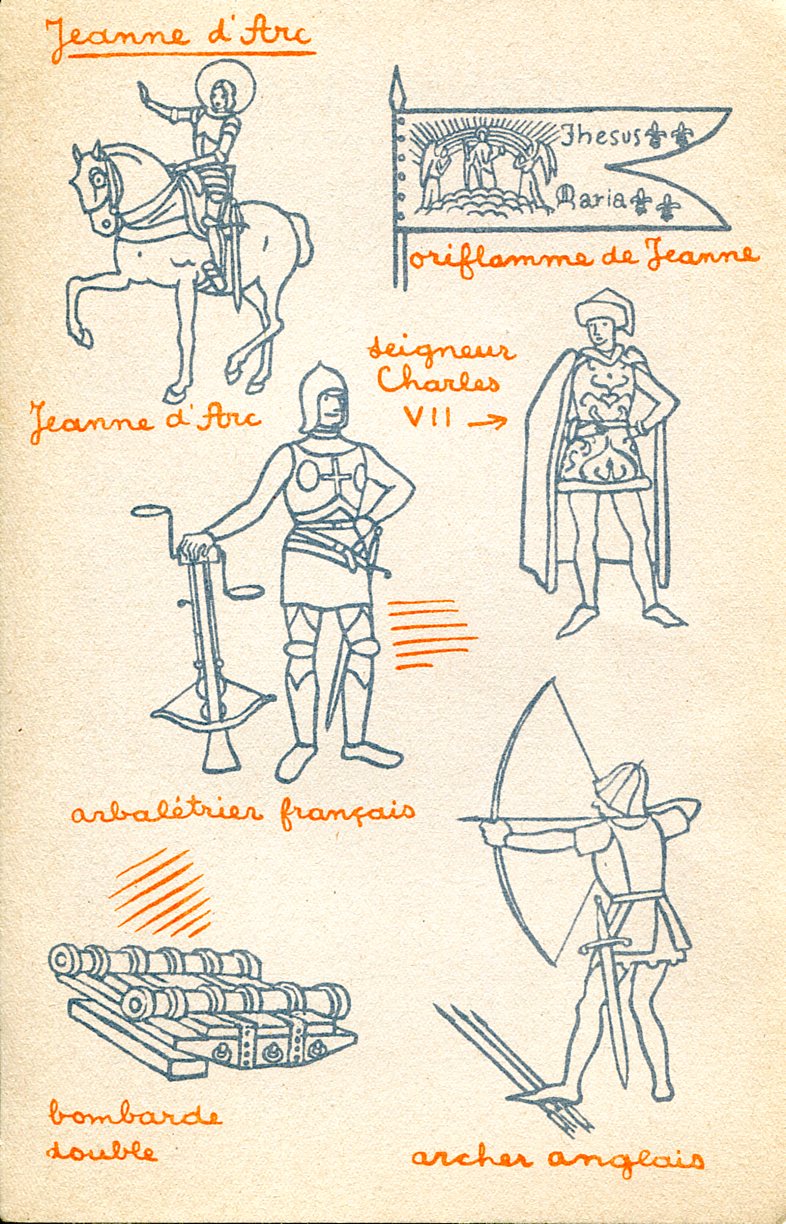 Jeanne d'Arc
Jhesus
Maria
oriflamme de Jeanne
seigneur
Charles
VII
Jeanne d'Arc
arbalétrier français
bombarde
double
archer anglais